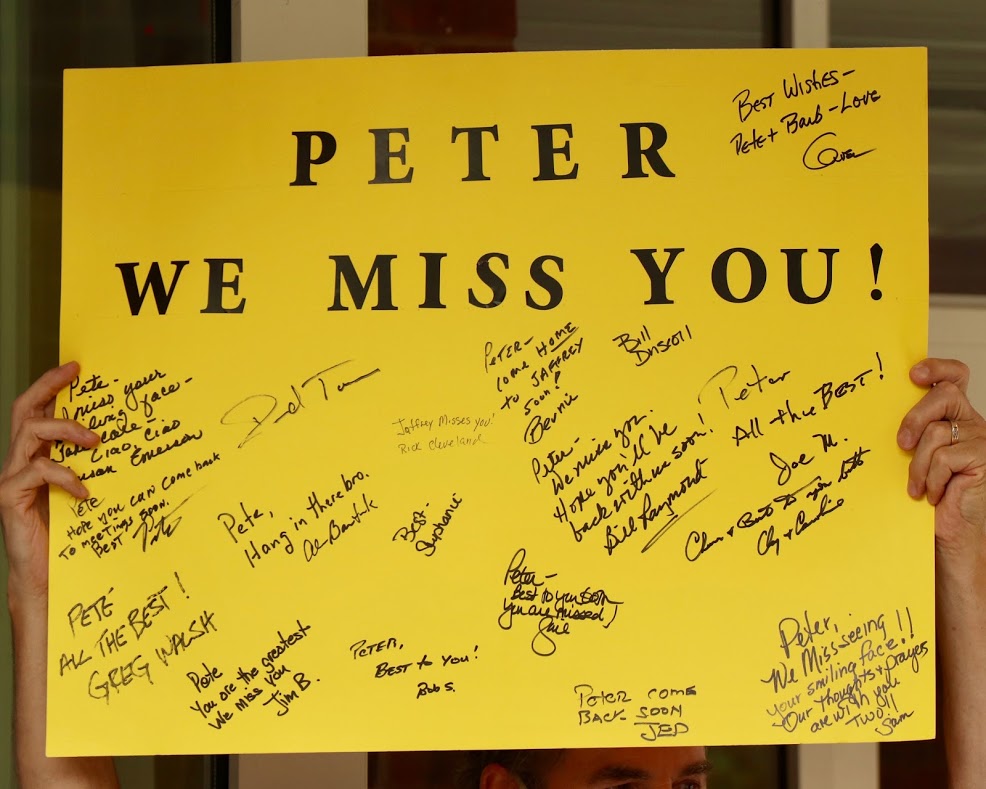 PETER
WE MISS YOU!
Best Wishes-
Pete + Barb - Love
Pete-
I miss your
face-
Ciao, Ciao
Susan Emerson
PETER-
COME HOME
TO JAFFREY
SOON!
Bernie
Bill
Driscoll
Jaffrey Misses You!
Rick Cleveland
Peter
All the BEST!
Joe M.
Peter-
We miss you.
Hope you'll be
back with us soon!
Bill Raymond
Pete
Hope you can come back
To meetings soon.
Best
Pete,
Hang in there bro.
Al
Best-
Stephanie
to you both
+ Caroline
Peter-
Best to you
you are missed!
PETE
ALL THE BEST!
GREG WALSH
Pete
You are the greatest
We miss you
Jim B.
PETER,
BEST to you!
Bob S.
PETER COME
BACK SOON
JED
Peter,
We Miss seeing
your smiling face!!
Our thoughts + prayers
are with you
Two!!
Sam